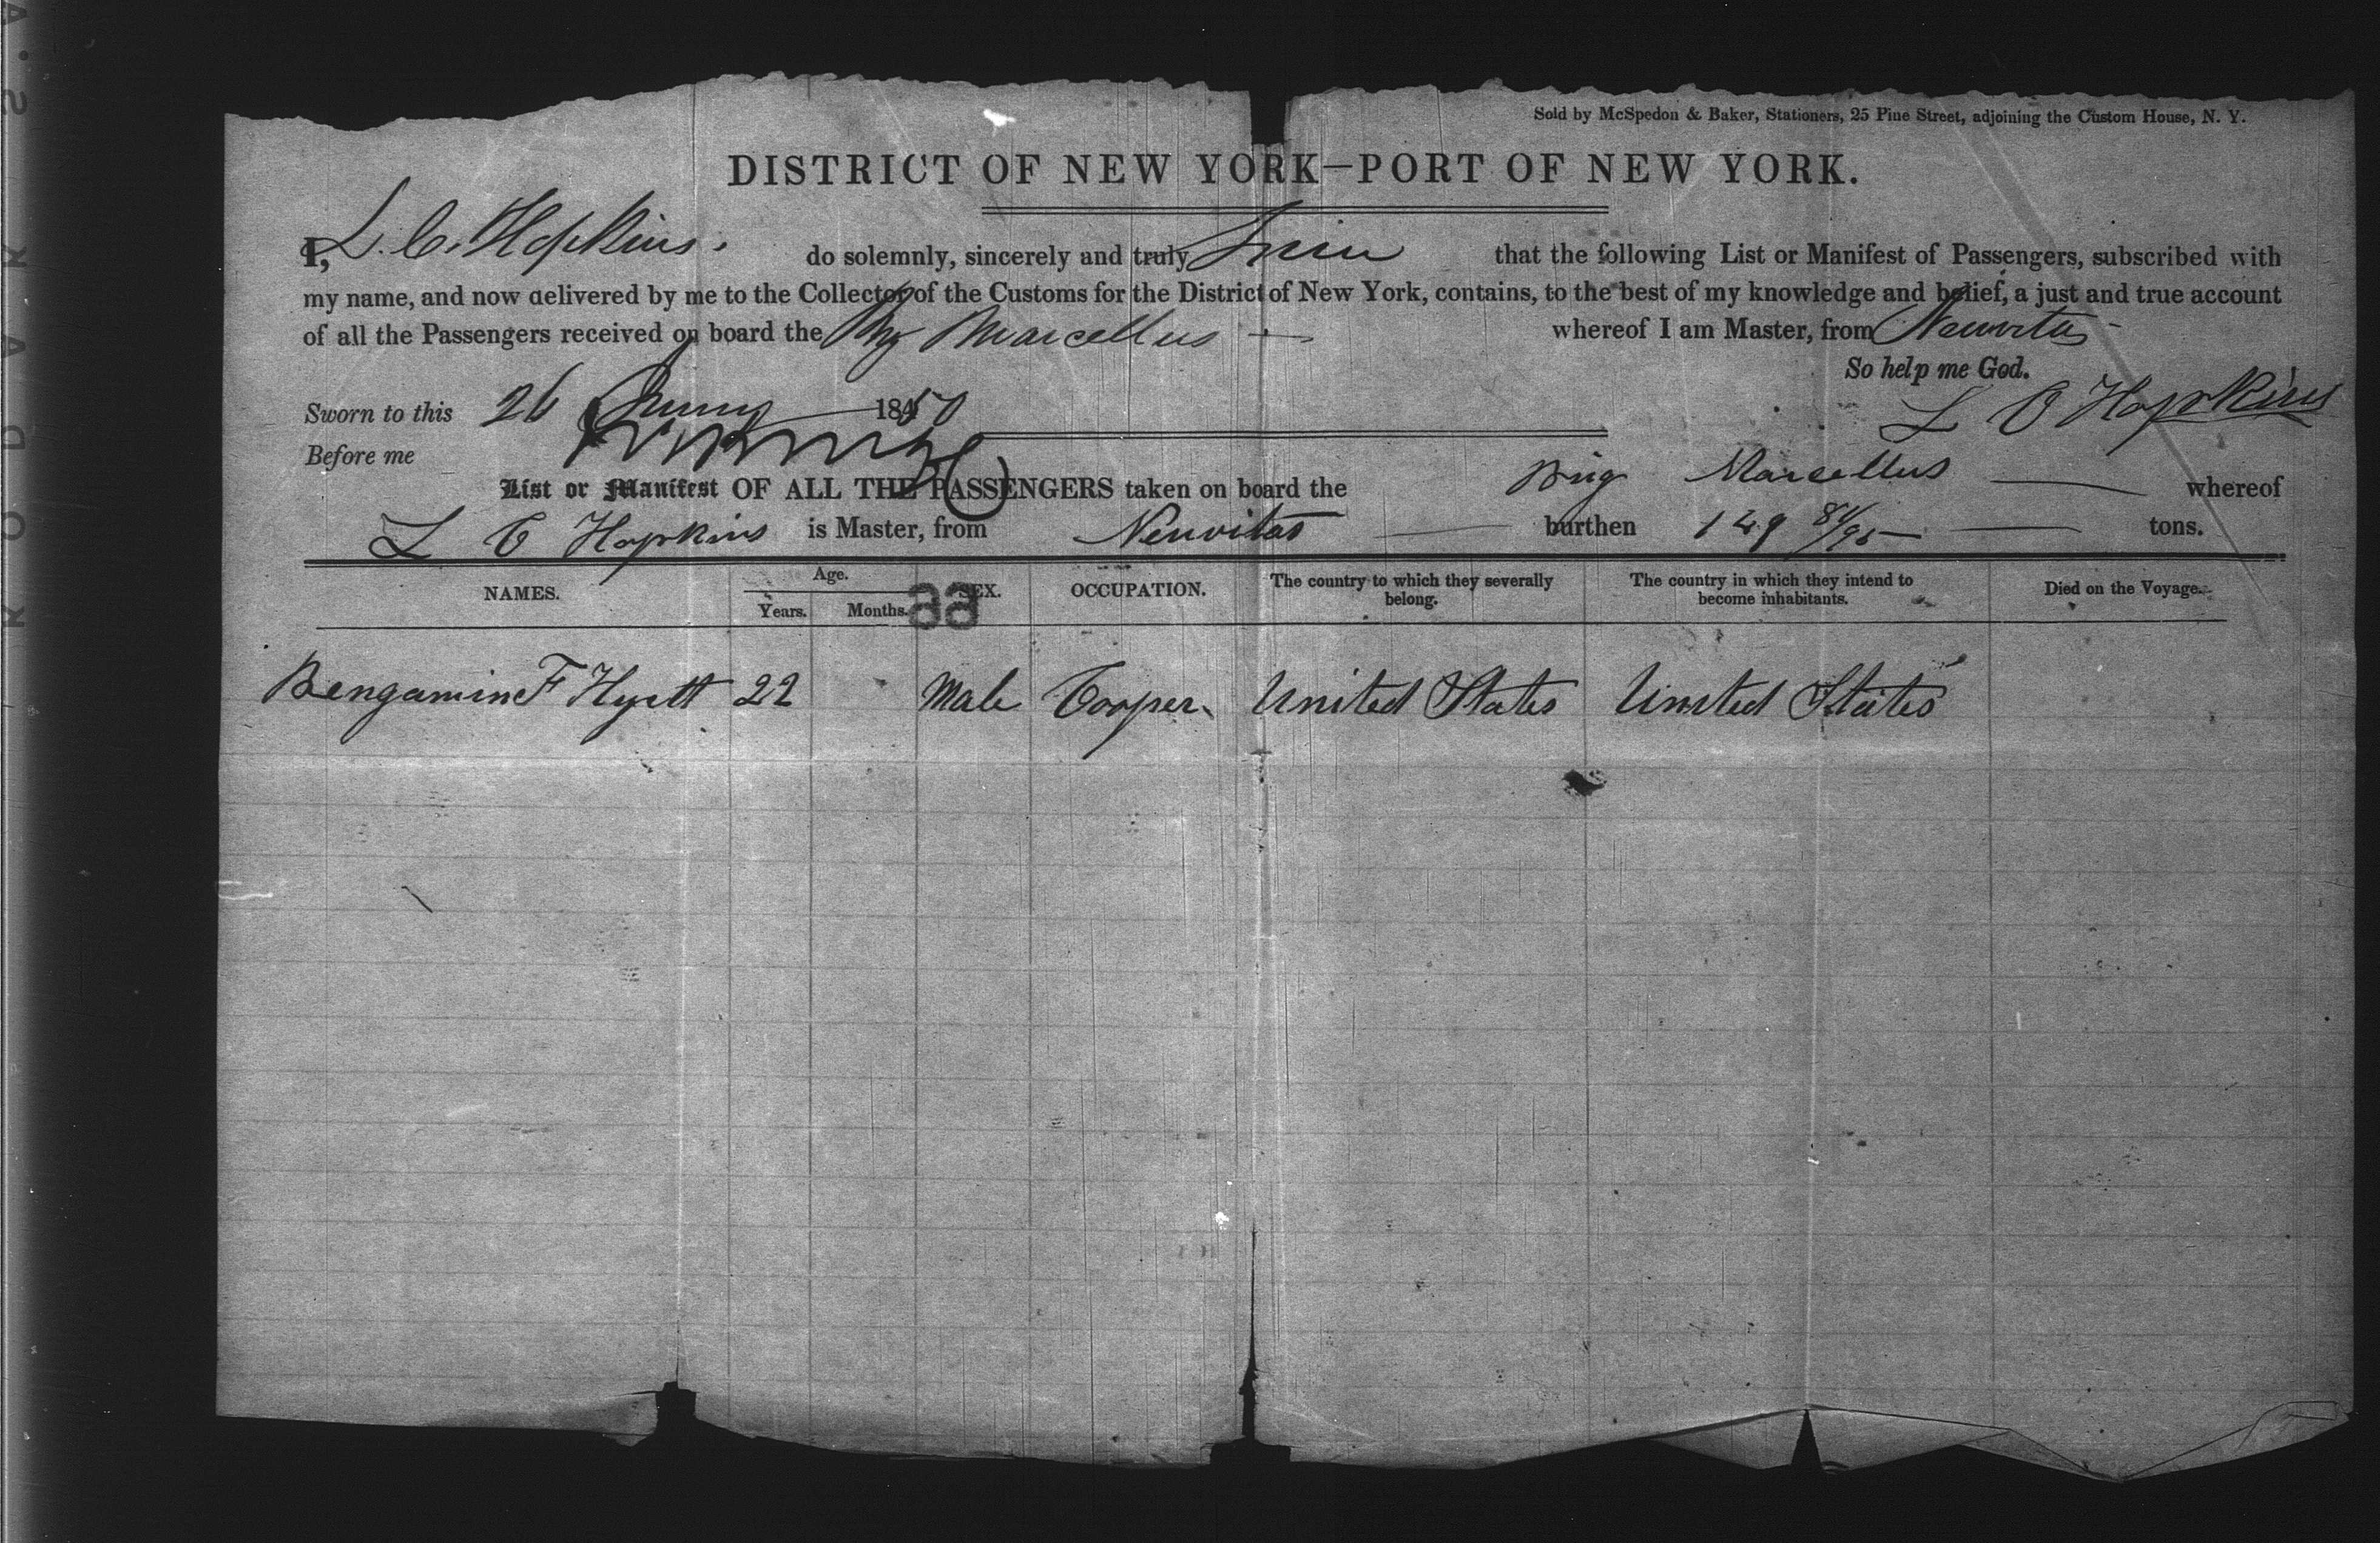 Sold by McSpedon & Baker, Stationers, 25 Pine Street, adjoining the Custom House, N. Y.
DISTRICT OF NEW YORK—PORT OF NEW YORK.
I, L. C. Hopkins. do solemnly, sincerely and truly that the following List or Manifest of Passengers, subscribed with
my name, and now delivered by me to the Collector of the Customs for the District of New York, contains, to the best of my knowledge and belief, a just and true account
of all the Passengers received on board the Brig Marcellus whereof I am Master, from Neuvitas
So help me God.
Sworn to this 26 1850 L C Hopkins
Before me
List or Manifest OF ALL THE PASSENGERS taken on board the Brig Marcellus whereof
L C Hopkins is Master, from Neuvitas burthen 149 84/95 tons.
NAMES. Age. Years. Months. SEX. OCCUPATION. The country to which they severally belong. The country in which they intend to become inhabitants. Died on the Voyage.
66
Bengamin F Hyatt 22 Male Cooper United States United States
KODAK